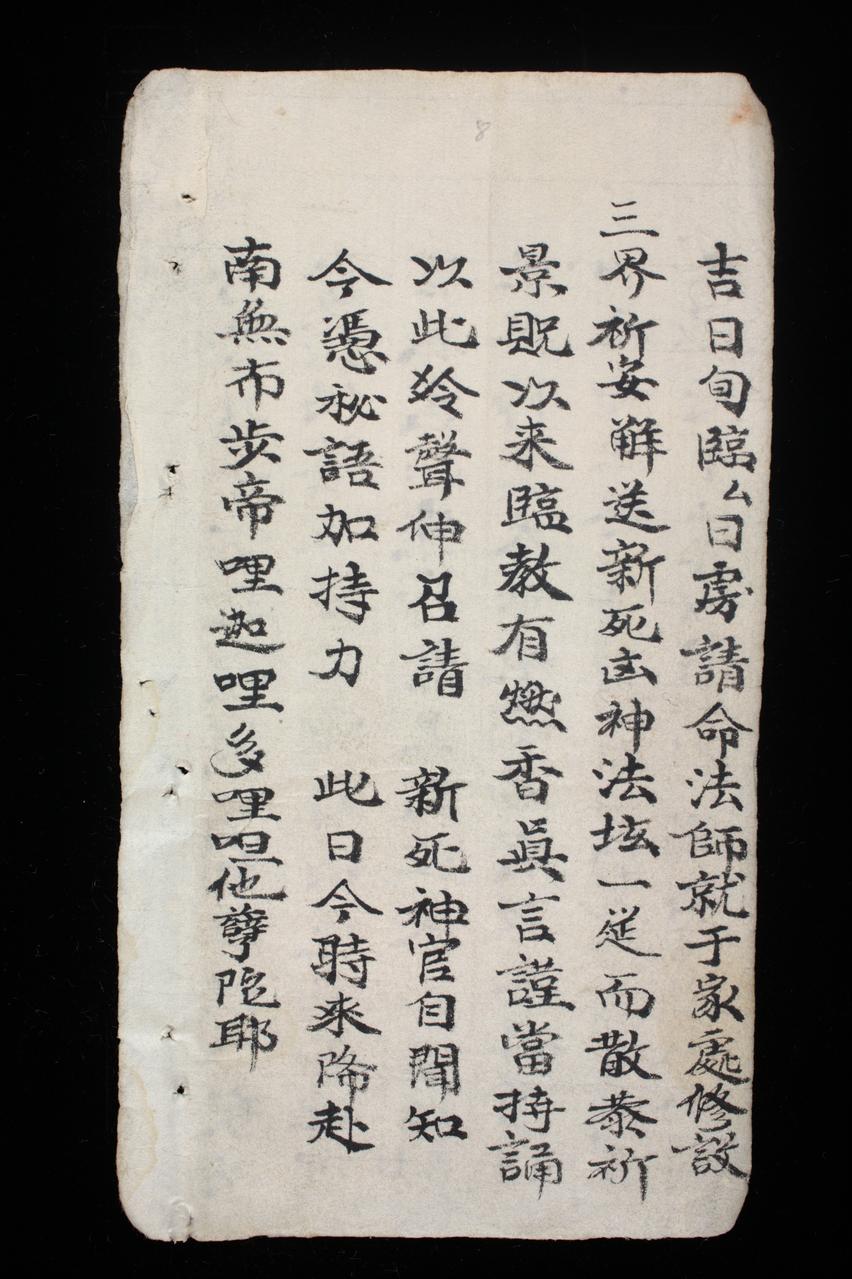 吉日旬臨厶日虔請命法師就于家處修設
三界祈安解送新死凶神法垓一筵而散恭祈
景貺以来臨教有燃香眞言謹當持誦
以此鈴聲伸召請 新死神官自聞知
今憑秘語加持力 此日今時来降赴
南無布步帝哩迦哩多哩怛他孽陀耶
8